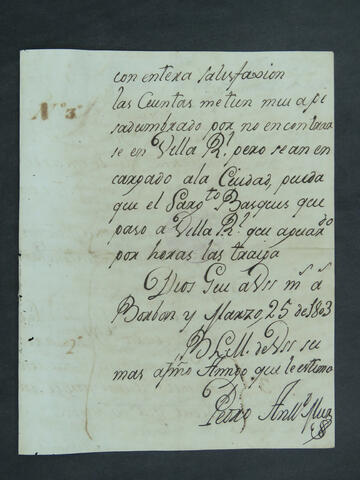 con entera satisfaxion
las Cuentas me tien mui ape
sadumbrado por no encontrar
se en Villa Rl. pero se an en
cargado a la Ciudad, pueda
que el Sargto Basques que
paso a Villa Rl. que aguardo
por horas las traiga
Dios Gue a Vss ms as
Borbon y Marzo, 25 de 1803
B. L. M. de Vss su
mas apdo Amigo que le estima
Pedro Anto
No 3
2